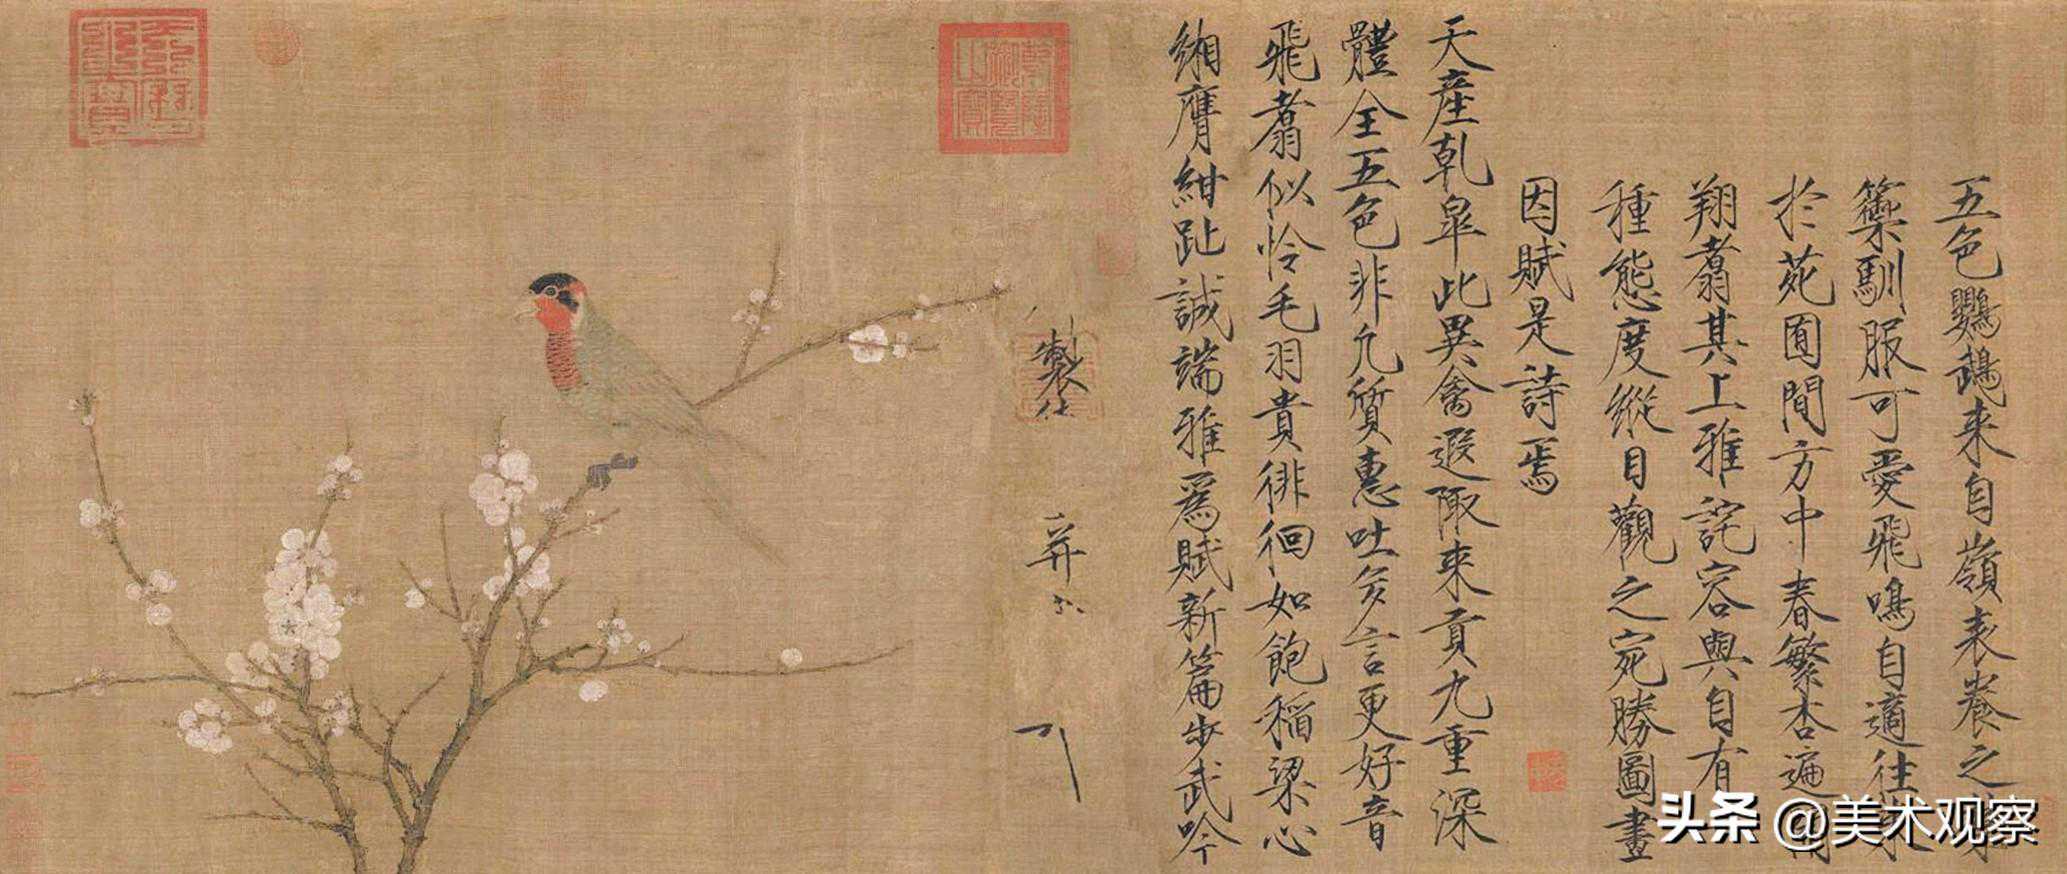 五色鸚鵡来自嶺表養之
籞馴服可愛飛鳴自適往
於苑囿間方中春繁杏遍
翔翥其上雅詫容與自有
種態度縱目觀之宛勝圖畫
因賦是詩焉
天產乾皐此異禽遐陬来貢九重深
體全五色非凢質惠吐多言更好音
飛翥似怜毛羽貴徘徊如飽稻粱心
緗膺紺趾誠端雅爲賦新篇步武吟
製
并
乾隆御覽之寶
头条 @美术观察